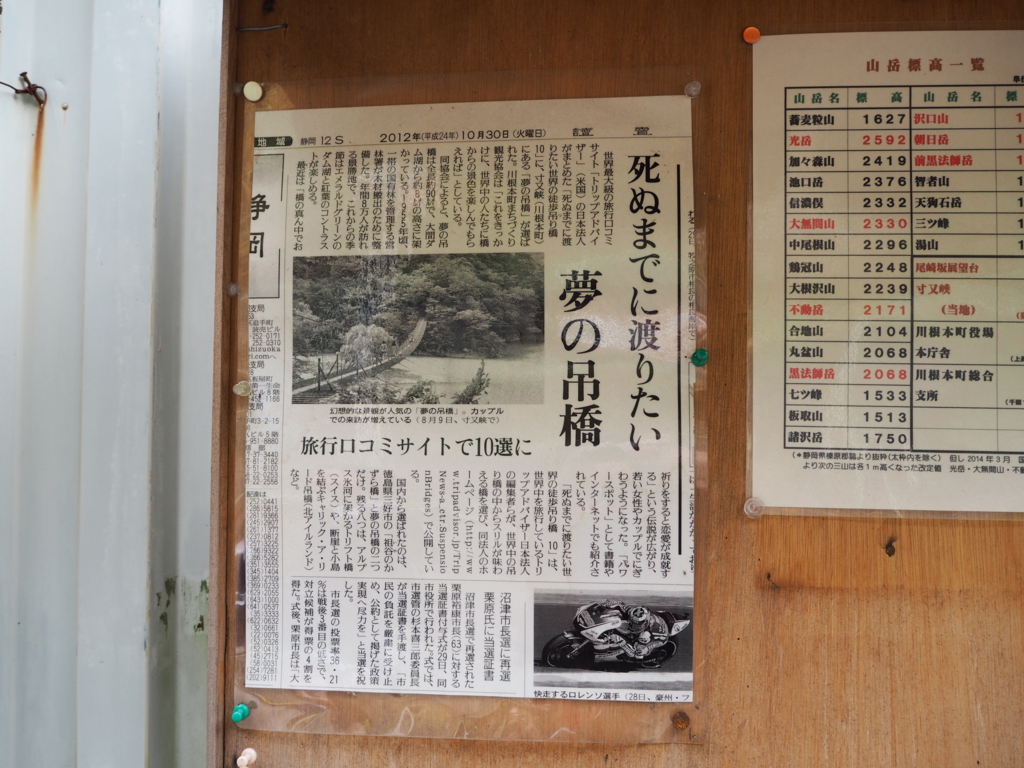 地域
静岡 12 S
2012年(平成24年)10月30日(火曜日)
読 売
死ぬまでに渡りたい
夢の吊橋
世界最大級の旅行口コミ
サイト「トリップアドバイ
ザー」(米国)の日本法人
がまとめた「死ぬまでに渡
りたい世界の徒歩吊り橋
10」に、寸又峡(川根本町)
にある「夢の吊橋」が選ば
れた。川根本町まちづくり
観光協会は「これをきっか
けに、世界中の人たちに橋
からの景色を楽しんでもら
えれば」としている。
同協会によると、夢の吊
橋は全長約90㍍で、大間ダ
ム湖から約8㍍の高さに架
かっている。1955年頃、
一帯の国有林を管理する営
林署が木材搬出のために整
備した。年間8万人が訪れ
る景勝地で、これからの季
節はエメラルドグリーンの
ダム湖と紅葉のコントラス
トが楽しめる。
最近は「橋の真ん中でお
幻想的な景観が人気の「夢の吊橋」。カップル
での来訪が増えている(8月9日、寸又峡で)
旅行口コミサイトで10選に
祈りをすると恋愛が成就す
る」という伝説が広がり、
若い女性やカップルでにぎ
わうようになった。「パワ
ースポット」として書籍や
インターネットでも紹介さ
れている。
「死ぬまでに渡りたい世
界の徒歩吊り橋 10」は、
世界中を旅行しているトリ
ップアドバイザー日本法人
の編集者らが、世界中の吊
り橋の中からスリルが味わ
える橋を選び、同法人のホ
ームページ(http://ww
w.tripadvisor.jp/Trip
News-a_etr.Suspensio
nBridges)で公開してい
る。
国内から選ばれたのは、
徳島県三好市の「祖谷のか
ずら橋」と夢の吊橋の二つ
だけ。残る八つは、アルプ
ス氷河に架かるトリフト橋
(スイス)や、断崖と小島
を結ぶキャリック・ア・リ
ード吊橋(北アイルランド)
など。
沼津市長選に再選
栗原氏に当選証書
沼津市長選で再選された
栗原裕康市長(63)に対する
当選証書付与式が29日、同
市役所で行われた。式では、
市選管の杉本喜三郎委員長
が当選証書を手渡し、「市
民の負託を厳粛に受け止
め、公約として掲げた政策
実現へ尽力を」と当選を祝
した。
市長選の投票率36・21
%は戦後3番目の低さで、
対立候補が得票の4割を
得た。式後、栗原市長は「大
快走するロレンソ選手(28日、豪州・フ
静
岡
山岳標高一覧
山岳名 標高 山岳名 標
蕎麦粒山 1627 沢口山 1
光岳 2592 朝日岳 1
加々森山 2419 前黒法師岳 1
池口岳 2376 智者山 1
信濃俣 2332 天狗石岳 1
大無間山 2330 三ツ峰 1
中尾根山 2296 湯山 1
鶏冠山 2248 尾崎坂展望台
大根沢山 2239 寸又峡
不動岳 2171 (当地)
合地山 2104 川根本町役場
丸盆山 2068 本庁舎
黒法師岳 2068 川根本町総合
七ツ峰 1533 支所
板取山 1513
諸沢岳 1750
(*静岡県榛原郡誌より抜粋(太枠内を除く) 但し2014年3月 国
より次の三山は各1m高くなった改定値 光岳・大無間山・不動